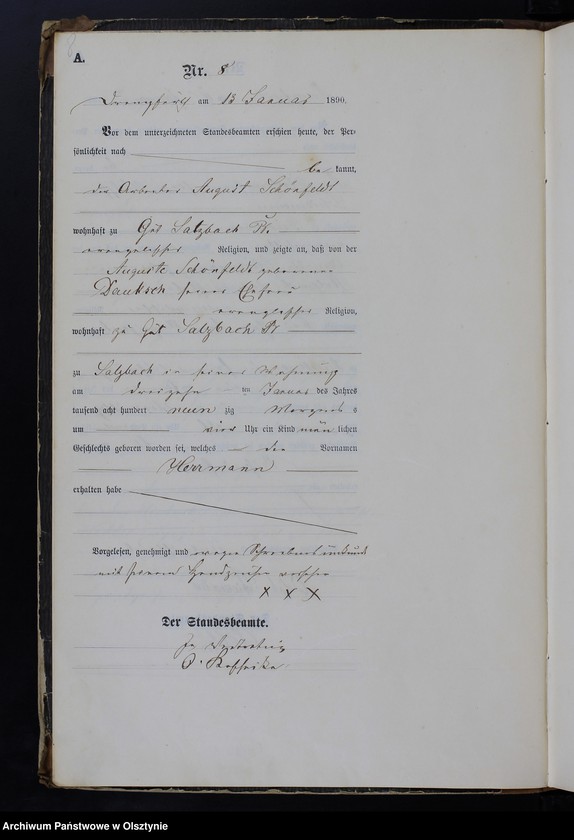 A.
Nr. 8
Drengfurth am 13 Januar 1890.
Vor dem unterzeichneten Standesbeamten erschien heute, der Per-
sönlichkeit nach
be kannt,
der Arbeiter August Schönfeldt
wohnhaft zu Gut Salzbach
evangelischer Religion, und zeigte an, daß von der
Auguste Schönfeldt geborenen
seiner Ehefrau
evangelischer Religion,
wohnhaft zu Gut Salzbach
zu Salzbach in seiner Wohnung
am dreizehn ten Januar des Jahres
tausend acht hundert neun zig Morgens
um vier Uhr ein Kind männ lichen
Geschlechts geboren worden sei, welches den Vornamen
Herrmann
erhalten habe
Vorgelesen, genehmigt und wegen Schreibensunkunde
mit seinem Handzeichen versehen
X X X
Der Standesbeamte.
In Vertretung
Archiwum Państwowe w Olsztynie